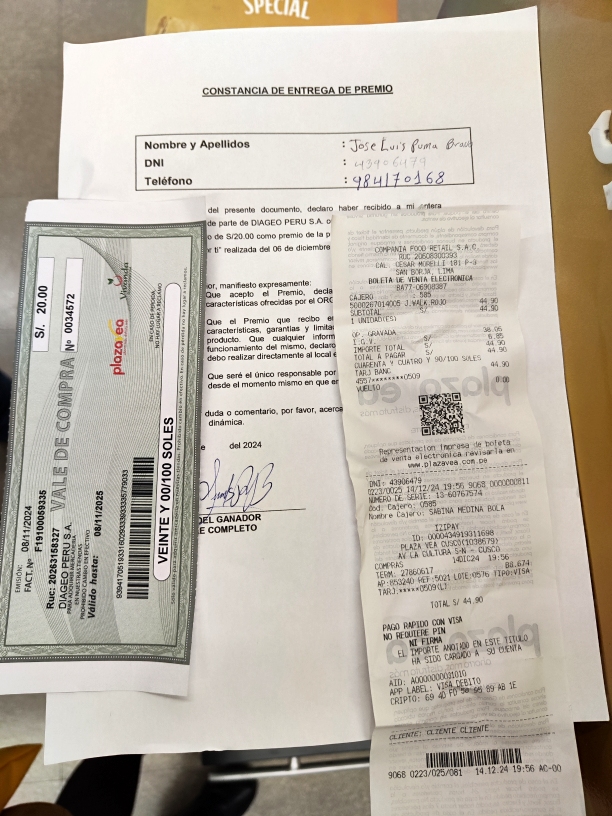 SPECIAL
CONSTANCIA DE ENTREGA DE PREMIO
Nombre y Apellidos : Jose Luis Puma Bravo
DNI : 43906479
Teléfono : 984170168
del presente documento, declaro haber recibido a mi entera
de parte de DIAGEO PERU S.A.
o de S/20.00 como premio de la p
ti" realizada del 06 de diciembre
or, manifiesto expresamente:
Que acepto el Premio, decla
características ofrecidas por el ORG
Que el Premio que recibo
características, garantías y limita
producto. Que cualquier inform
funcionamiento del mismo, declaro
debo realizar directamente al local
Que seré el único responsable por
desde el momento mismo en que
duda o comentario, por favor, acerca
dinámica.
e del 2024
DEL GANADOR
E COMPLETO
EMISIÓN: 08/11/2024
FACT. Nº F19100059335
VALE DE COMPRA Nº 0034572
S/. 20.00
Ruc: 20263158327
DIAGEO PERU S.A.
PROHIBIDO CAMBIO EN EFECTIVO
Válido hasta: 08/11/2025
plazaVea
Vivanda
EN CASO DE PERDIDA
NO HAY LUGAR A RECLAMO
VEINTE Y 00/100 SOLES
COMPANIA FOOD RETAIL S.A.C
RUC 20608300393
CAL. CESAR MORELLI 181 P-3
SAN BORJA, LIMA
BOLETA DE VENTA ELECTRONICA
B477-06908387
CAJERO : 585
5000267014005 J.WALK.ROJO 44.90
SUBTOTAL S/ 44.90
1 UNIDAD(ES)
OP. GRAVADA 38.05
I.G.V. S/ 6.85
IMPORTE TOTAL S/ 44.90
TOTAL A PAGAR S/ 44.90
CUARENTA Y CUATRO Y 90/100 SOLES
TARJ BANC 44.90
4557********0509
VUELTO 0.00
Representacion impresa de boleta
de venta electronica revisarla en
www.plazavea.com.pe
DNI: 43906479
0223/0025 14/12/24 19:56 9068 0000000811
NUMERO DE SERIE: 13-60767574
Cod. Cajero: 0585
Nombre Cajero: SABINA MEDINA BOLA
IZIPAY
ID: 0000434919311698
PLAZA VEA CUSCO(1038679)
AV LA CULTURA S-N - CUSCO
COMPRAS 14DIC24 19:56
TERM: 27860617 B8.674
AP:853240 REF:5021 LOTE:0576 TIPO:VISA
TARJ:*****0509(L)
TOTAL S/ 44.90
PAGO RAPIDO CON VISA
NO REQUIERE PIN
NI FIRMA
EL IMPORTE ANOTADO EN ESTE TITULO
HA SIDO CARGADO A SU CUENTA
AID: A0000000031010
APP LABEL: VISA DEBITO
CRIPTO: 69 4D FD 50 98 89 AB 1E
CLIENTE: CLIENTE CLIENTE
9068 0223/025/081 14.12.24 19:56 AC-00